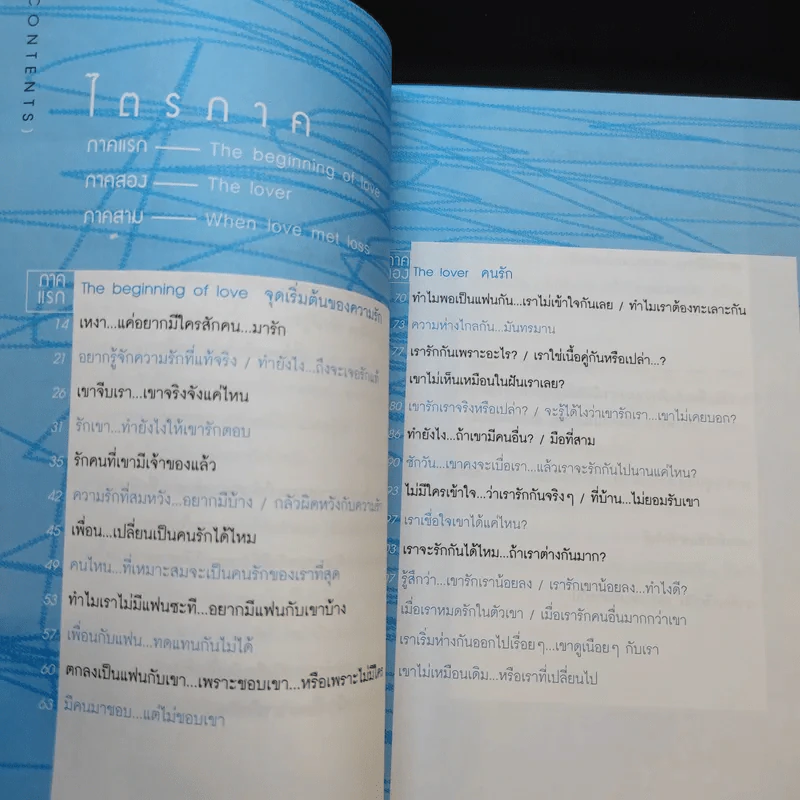 CONTENTS)
ไตรภาค
ภาคแรก —— The beginning of love
ภาคสอง —— The lover
ภาคสาม —— When love met loss
ภาค
แรก
The beginning of love จุดเริ่มต้นของความรัก
14 เหงา...แค่อยากมีใครสักคน...มารัก
21 อยากรู้จักความรักที่แท้จริง / ทำยังไง...ถึงจะเจอรักแท้
26 เขาจีบเรา...เขาจริงจังแค่ไหน
31 รักเขา...ทำยังไงให้เขารักตอบ
35 รักคนที่เขามีเจ้าของแล้ว
42 ความรักที่สมหวัง...อยากมีบ้าง / กลัวผิดหวังกับความรัก
45 เพื่อน...เปลี่ยนเป็นคนรักได้ไหม
49 คนไหน...ที่เหมาะสมจะเป็นคนรักของเราที่สุด
53 ทำไมเราไม่มีแฟนซะที...อยากมีแฟนกับเขาบ้าง
57 เพื่อนกับแฟน...ทดแทนกันไม่ได้
60 ตกลงเป็นแฟนกับเขา...เพราะชอบเขา...หรือเพราะไม่มีใคร
63 มีคนมาชอบ...แต่ไม่ชอบเขา
ภาค
สอง
The lover คนรัก
70 ทำไมพอเป็นแฟนกัน...เราไม่เข้าใจกันเลย / ทำไมเราต้องทะเลาะกัน
73 ความห่างไกลกัน...มันทรมาน
77 เรารักกันเพราะอะไร? / เราใช่เนื้อคู่กันหรือเปล่า...?
เขาไม่เห็นเหมือนในฝันเราเลย?
80 เขารักเราจริงหรือเปล่า? / จะรู้ได้ไงว่าเขารักเรา...เขาไม่เคยบอก?
86 ทำยังไง...ถ้าเขามีคนอื่น? / มือที่สาม
90 ซักวัน...เขาคงจะเบื่อเรา...แล้วเราจะรักกันไปนานแค่ไหน?
93 ไม่มีใครเข้าใจ...ว่าเรารักกันจริงๆ / ที่บ้าน...ไม่ยอมรับเขา
97 เราเชื่อใจเขาได้แค่ไหน?
03 เราจะรักกันได้ไหม...ถ้าเราต่างกันมาก?
รู้สึกว่า...เขารักเราน้อยลง / เรารักเขาน้อยลง...ทำไงดี?
เมื่อเราหมดรักในตัวเขา / เมื่อเรารักคนอื่นมากกว่าเขา
เราเริ่มห่างกันออกไปเรื่อยๆ...เขาดูเนือยๆ กับเรา
เขาไม่เหมือนเดิม...หรือเราที่เปลี่ยนไป